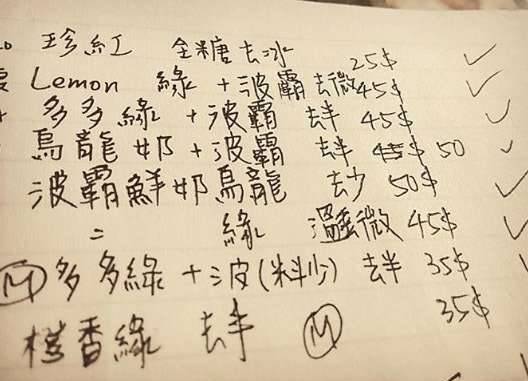 珍紅 全糖去冰 25$
Lemon 綠 +波霸 去微 45$
多多綠 +波霸 去半 45$
烏龍奶 +波霸 去半 45$ 50
波霸鮮奶烏龍 去少 50$
= 綠 溫微 45$
M 多多綠 +波(料少) 去半 35$
檸香綠 去半 M 35$